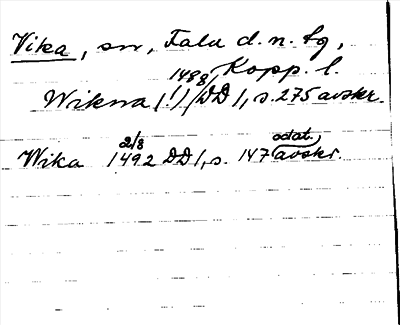 Vika, sn, Falu d. n. tg,
Kopp. l.
1488
Wikna (!) DD 1, s. 275 avskr.
2/8 odat.
Wika 1492 DD 1, s. 147 avskr.